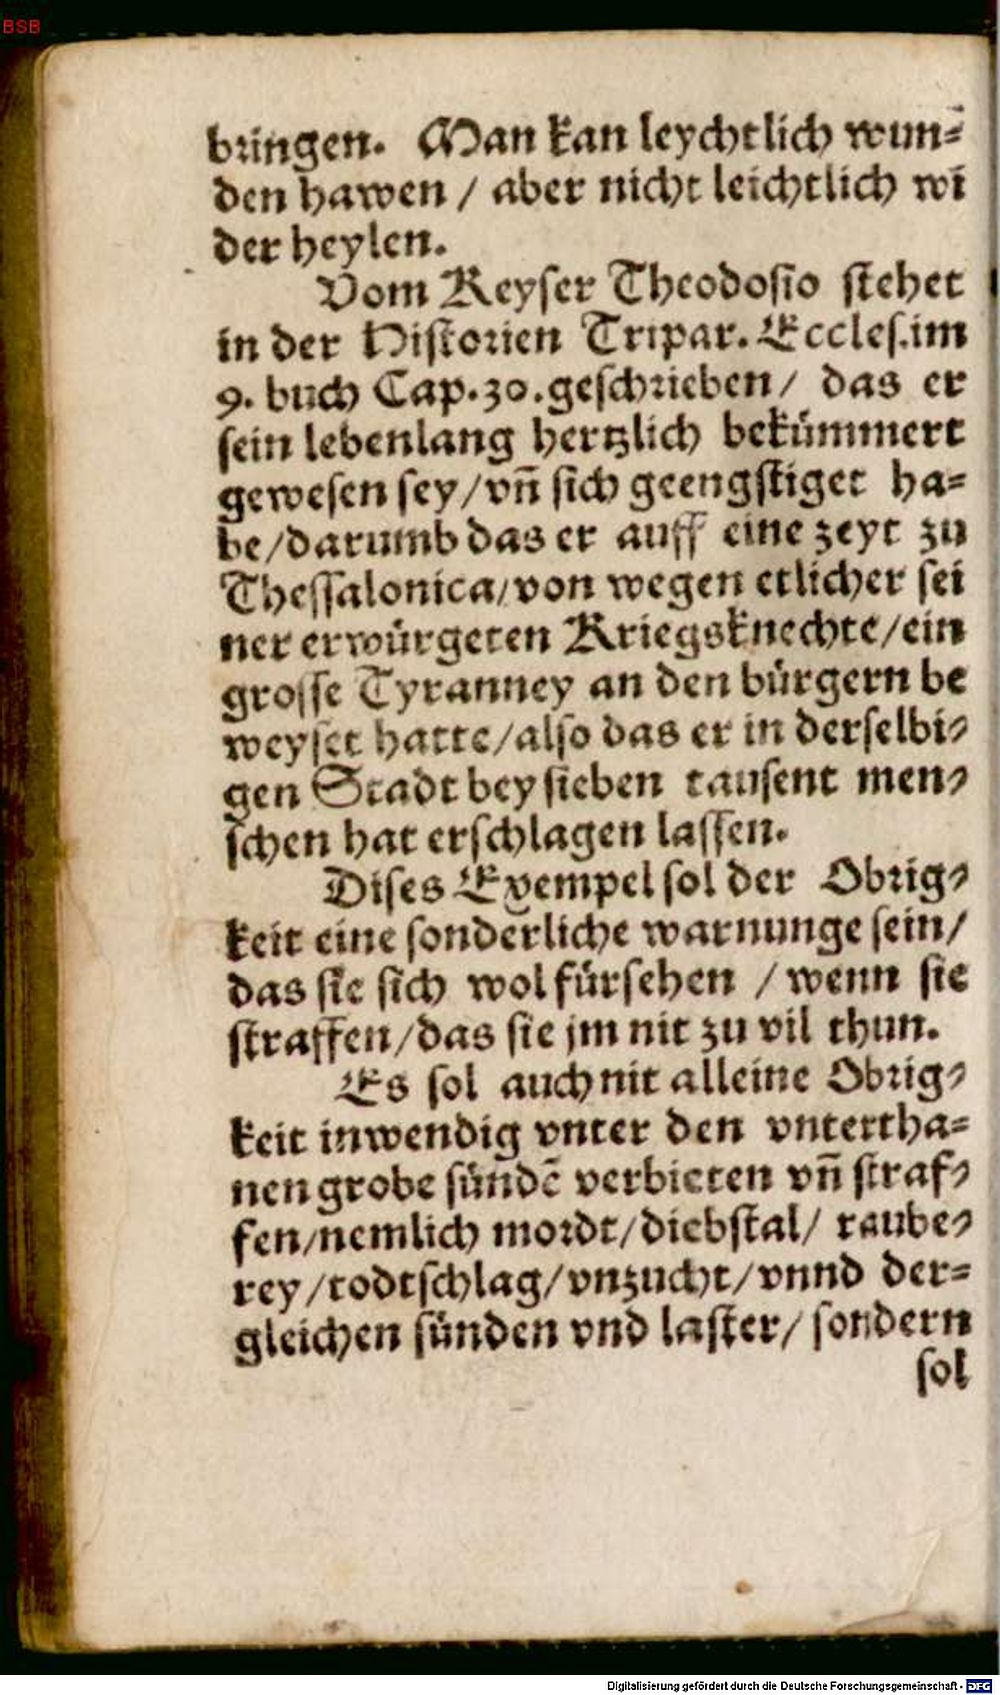 BSB
bringen. Man kan leychtlich wun⸗
den hawen / aber nicht leichtlich wi
der heylen.
Vom Keyser Theodosio stehet
in der Historien Tripar. Eccles. im
9. buch Cap. 30. geschrieben / das er
sein lebenlang hertzlich bekümmert
gewesen sey / vn̄ sich geengstiget ha⸗
be / darumb das er auff eine zeyt zu
Thessalonica / von wegen etlicher sei
ner erwürgeten Kriegsknechte / ein
grosse Tyranney an den bürgern be
weyset hatte / also das er in derselbi⸗
gen Stadt bey sieben tausent men⸗
schen hat erschlagen lassen.
Dises Exempel sol der Obrig⸗
keit eine sonderliche warnunge sein /
das sie sich wol fürsehen / wenn sie
straffen / das sie jm nit zu vil thun.
Es sol auch nit alleine Obrig⸗
keit inwendig vnter den vntertha⸗
nen grobe sündē verbieten vn̄ straf⸗
fen / nemlich mordt / diebstal / raube⸗
rey / todtschlag / vnzucht / vnnd der⸗
gleichen sünden vnd laster / sondern
sol
Digitalisierung gefördert durch die Deutsche Forschungsgemeinschaft - DFG